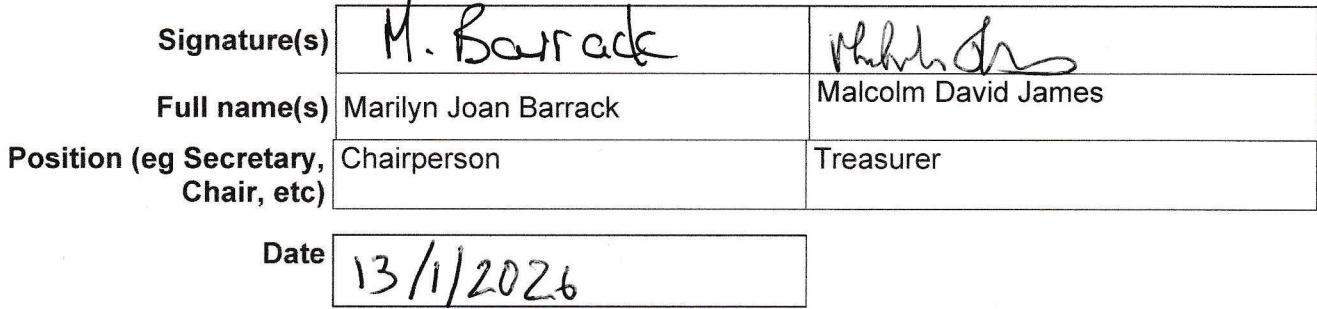 Signature(s) M. Barrack
Full name(s) Marilyn Joan Barrack Malcolm David James
Position (eg Secretary, Chairperson Treasurer
Chair, etc)
Date 13/1/2026